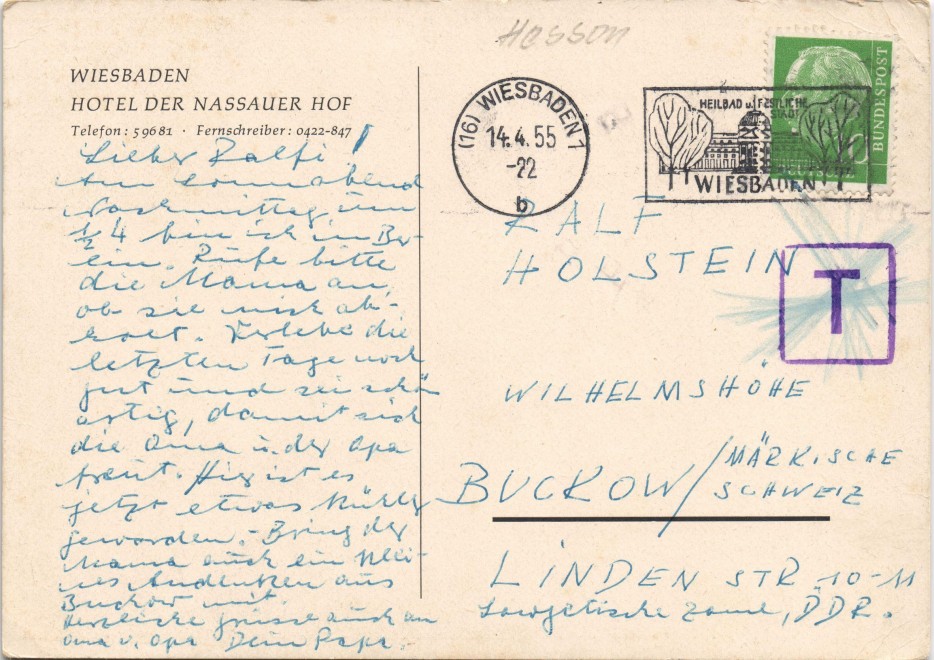 Hesson
WIESBADEN
HOTEL DER NASSAUER HOF
Telefon: 59681 · Fernschreiber: 0422-847
Lieber Ralfi!
Am Sonnabend
Nachmittag um
½ 4 bin ich in Ber-
lin. Rufe bitte
die Mama an,
ob sie mich ab-
holt. Verlebe die
letzten Tage noch
gut und sei schön
artig, damit sich
die Oma u. der Opa
freut. Hier ist es
jetzt etwas kühler
geworden.- Bring der
Mama auch ein klei-
nes Andenken aus
Buckow mit.
Herzliche Grüsse auch an
Oma u. Opa Dein Papa.-
(16) WIESBADEN 1
14.4.55
-22
b
HEILBAD u. FESTLICHE
STADT
WIESBADEN
BUNDESPOST
RALF
HOLSTEIN
T
WILHELMSHÖHE
BUCKOW/MÄRKISCHE
SCHWEIZ
LINDEN STR 10-11
Sowjetische Zone, DDR.